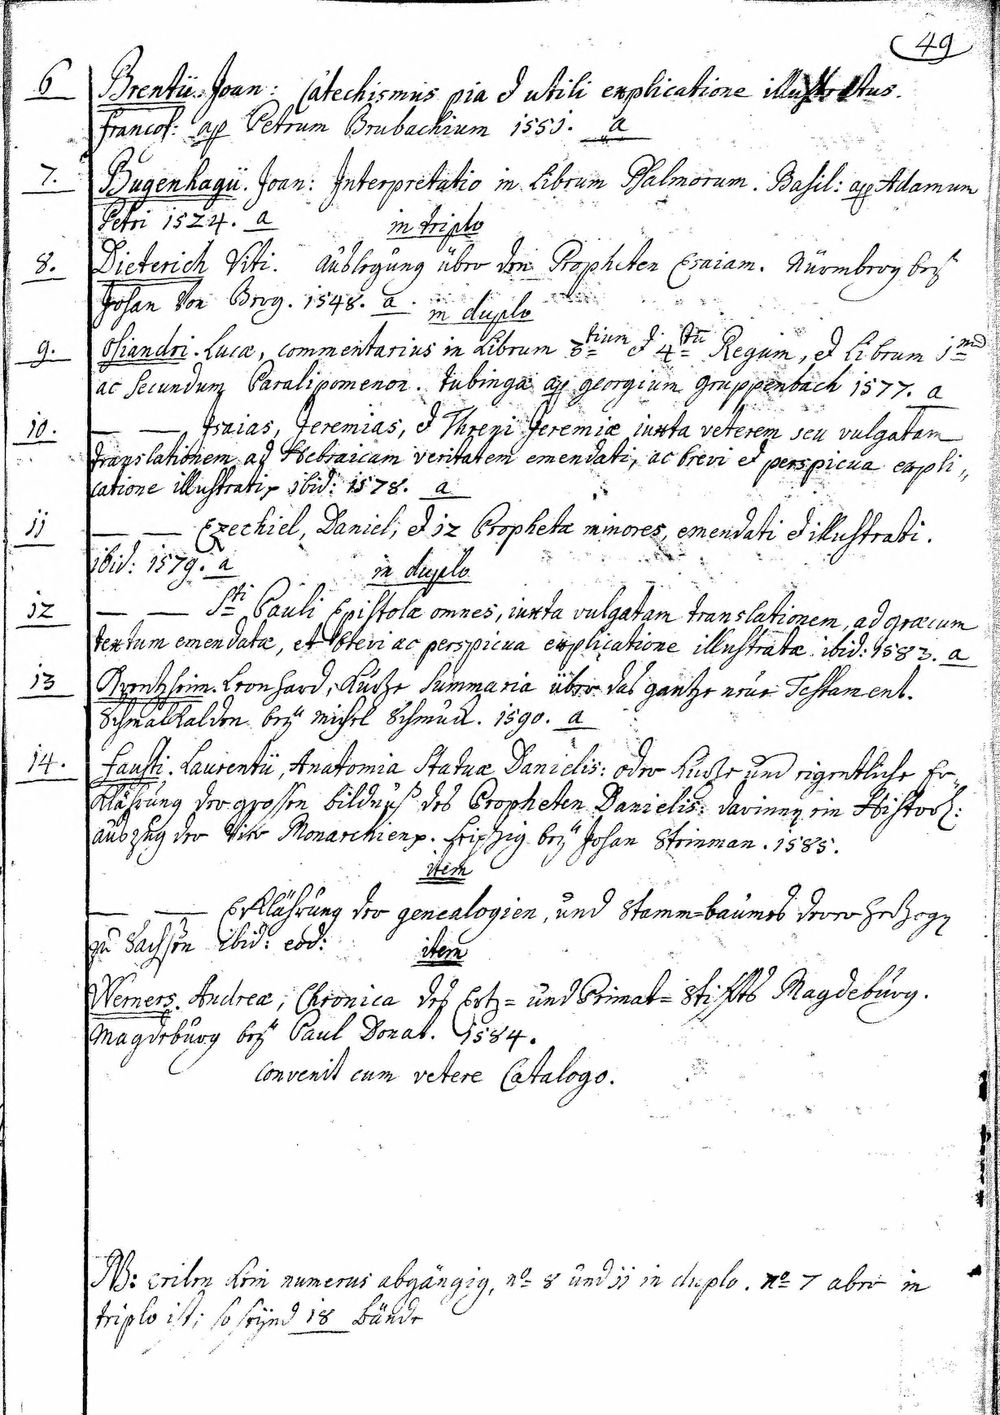 49
6 Brentii. Joan: Catechismus pia et utili explicatione illustratus.
francof: ap Petrum Brubachium 1551. a
7. Bugenhagii. Joan: Interpretatio in Librum Psalmorum. Basil: ap Adamum
Petri 1524. a in triplo
8. Dieterich Viti. Außlegung über den Propheten Esaiam. Nürmberg beÿ
Johan Von Berg. 1548. a. in duplo
9. Osiandri. Lucæ, commentarius in Librum 3tium et 4tū Regum, et Librum 1mū
ac secundum Paralipomenon. tubingæ ap georgium gruppenbach 1577. a
10. — — Isaias, Jeremias, et Threni Jeremiæ iuxta veterem seu vulgatam
translationem ad Hebraicam veritatem emendati, ac brevi et perspicua expli„
catione illustrati, ibid: 1578. a
11 — — Ezechiel, Daniel, et 12 Prophetæ minores, emendati et illustrati.
ibid: 1579. a in duplo
12 — — Sti Pauli Epistolæ omnes, iuxta vulgatam translationem, ad græcum
textum emendatæ, et brevi ac perspicua explicatione illustratæ ibid: 1583. a
13 Krentzheim. Leonhard, Kurtze Summaria über das gantze neue Testament.
Schmalkalden beÿ Michel Schmuck. 1590. a
14. Fausti. Laurentii, Anatomia Statuæ Danielis: oder Kurtze und eigentliche Er„
Klährung der grossen bildnuß des Propheten Danielis: darinnen ein Histor:
außzug der Vier Monarchien. Leipzig beÿ Johan Steinman. 1585.
item
— — Erklährung der genealogien, und Stamm=baumes derer Hertzogen
zu Sachsen ibid: eod: item
Werners. Andreæ, Chronica des Ertz= und Primat= Stiffts Magdeburg.
Magdeburg beÿ Paul Donat. 1584.
convenit cum vetere Catalogo.
NB: weilen Kein numerus abgängig, no 8 und 11 in duplo. no 7 aber in
triplo ist; so seÿnd 18 bände